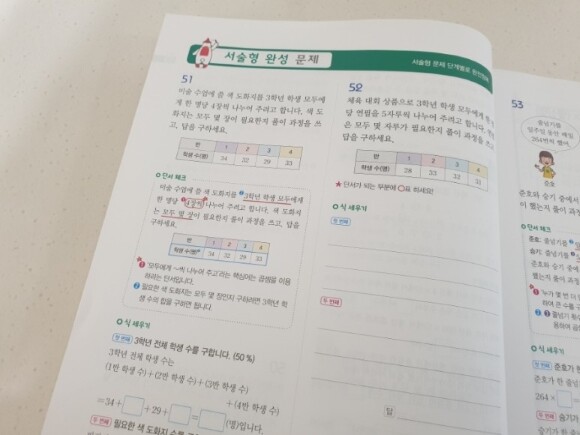 서술형 완성 문제
서술형 문제 단계별로
51
미술 수업에 쓸 색 도화지를 3학년 학생 모두에
게 한 명당 4장씩 나누어 주려고 합니다. 색 도
화지는 모두 몇 장이 필요한지 풀이 과정을 쓰
고, 답을 구하세요.
반 1 2 3 4
학생 수(명) 34 32 29 33
단서 체크
미술 수업에 쓸 색 도화지를 3학년 학생 모두에게
한 명당 4장씩 나누어 주려고 합니다. 색 도화지
는 모두 몇 장이 필요한지 풀이 과정을 쓰고, 답을
구하세요.
반 1 2 3 4
학생 수(명) 34 32 29 33
1 '모두에게 ~씩 나누어 주고'라는 핵심어는 곱셈을 이용
하라는 단서입니다.
2 필요한 색 도화지는 모두 몇 장인지 구하려면 3학년 학
생 수의 합을 구하면 됩니다.
식 세우기
첫 번째 3학년 전체 학생 수를 구합니다. (50 %)
3학년 전체 학생 수는
(1반 학생 수)+(2반 학생 수)+(3반 학생 수)
+(4반 학생 수)
=34+ +29+ = (명)입니다.
두 번째 필요한 색 도화지 수를
52
체육 대회 상품으로 3학년 학생 모두에게 한
당 연필을 5자루씩 나누어 주려고 합니다.
은 모두 몇 자루가 필요한지 풀이 과정을
답을 구하세요.
반 1 2 3 4
학생 수(명) 28 33 32 31
★ 단서가 되는 부분에 ○표 하세요!
식 세우기
첫 번째
두 번째
답
53
줄넘기를
일주일 동안 매일
264번씩 했어.
준호
준호와 승기
했는지 풀이
단서 체크
준호: 줄넘기를
승기: 줄넘기를
준호와 승기 중
했는지 풀이 과정
1 '누가 몇 번 더
하여 큰 수를
2 줄넘기 횟
용하여
식 세우기
첫 번째 준호가
준호가 한 줄넘
264×
두 번째 승기가
승기가 한